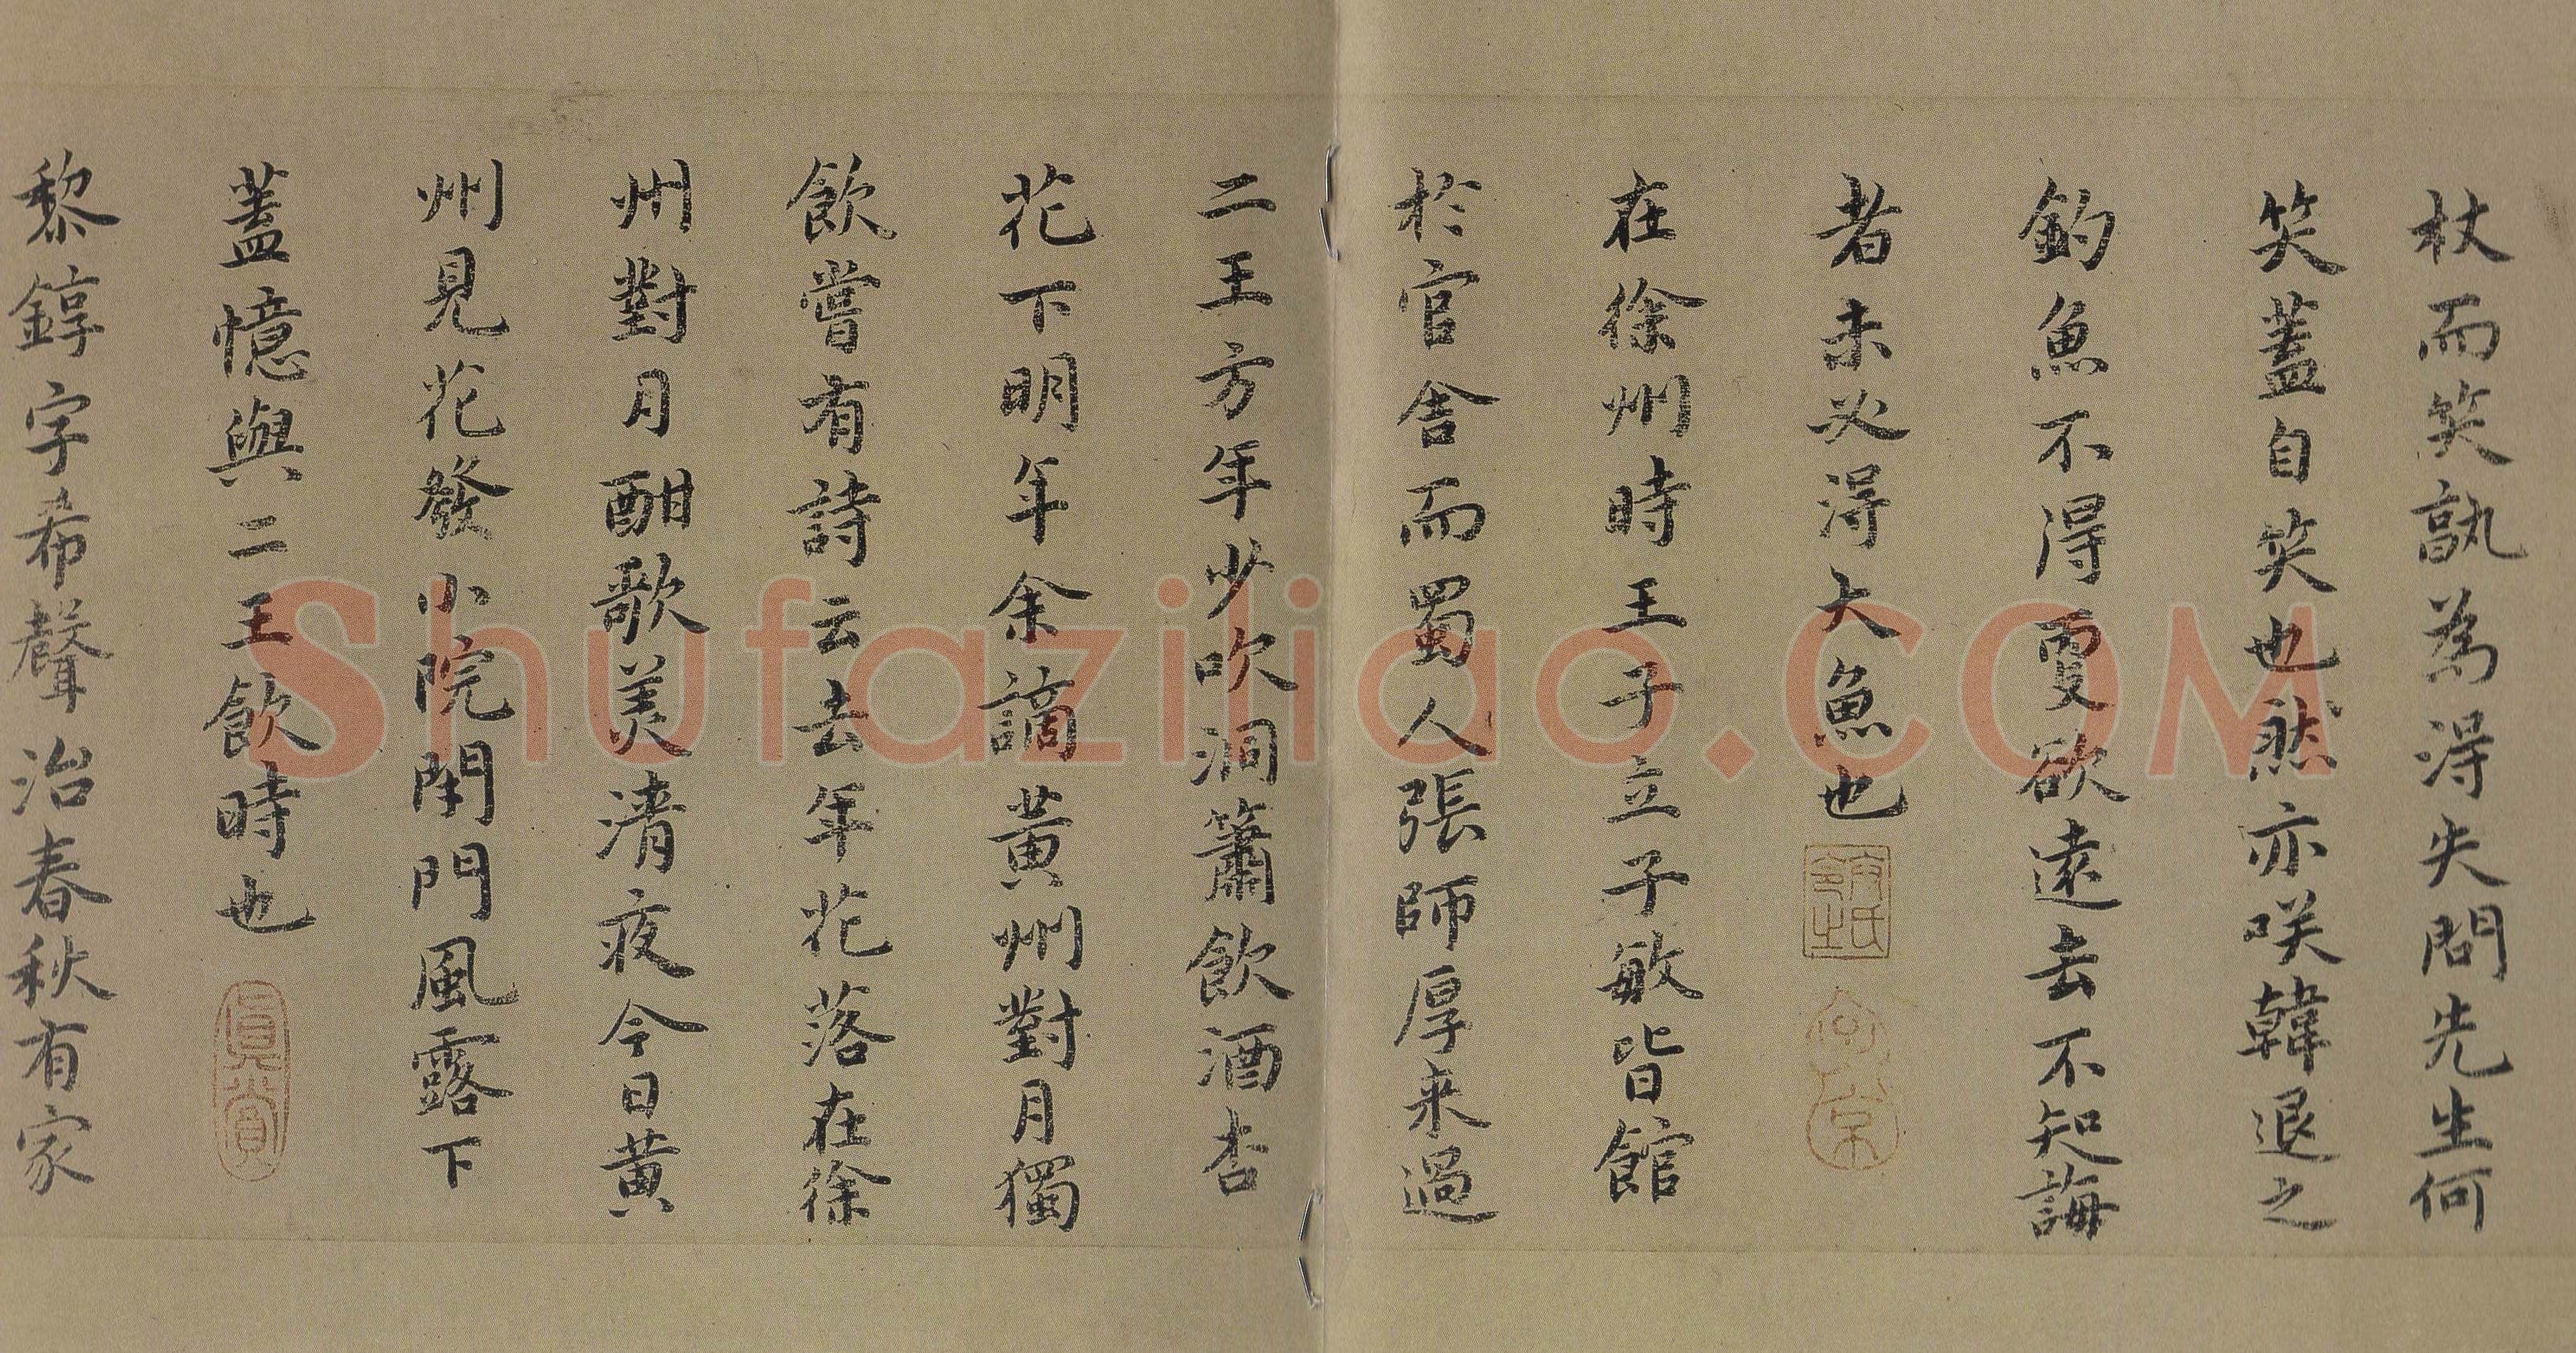 杖而笑孰為得失問先生何
笑蓋自笑也然亦咲韓退之
釣魚不得更欲遠去不知誨
者未必得大魚也
在徐州時王子立子敏皆館
於官舍而蜀人張師厚来過
二王方年少吹洞簫飲酒杏
花下明年余謫黃州對月獨
飲嘗有詩云去年花落在徐
州對月酣歌美清夜今日黃
州見花發小院閉門風露下
蓋憶與二王飲時也
真賞
黎錞字希聲治春秋有家
Shufaziliao.COM